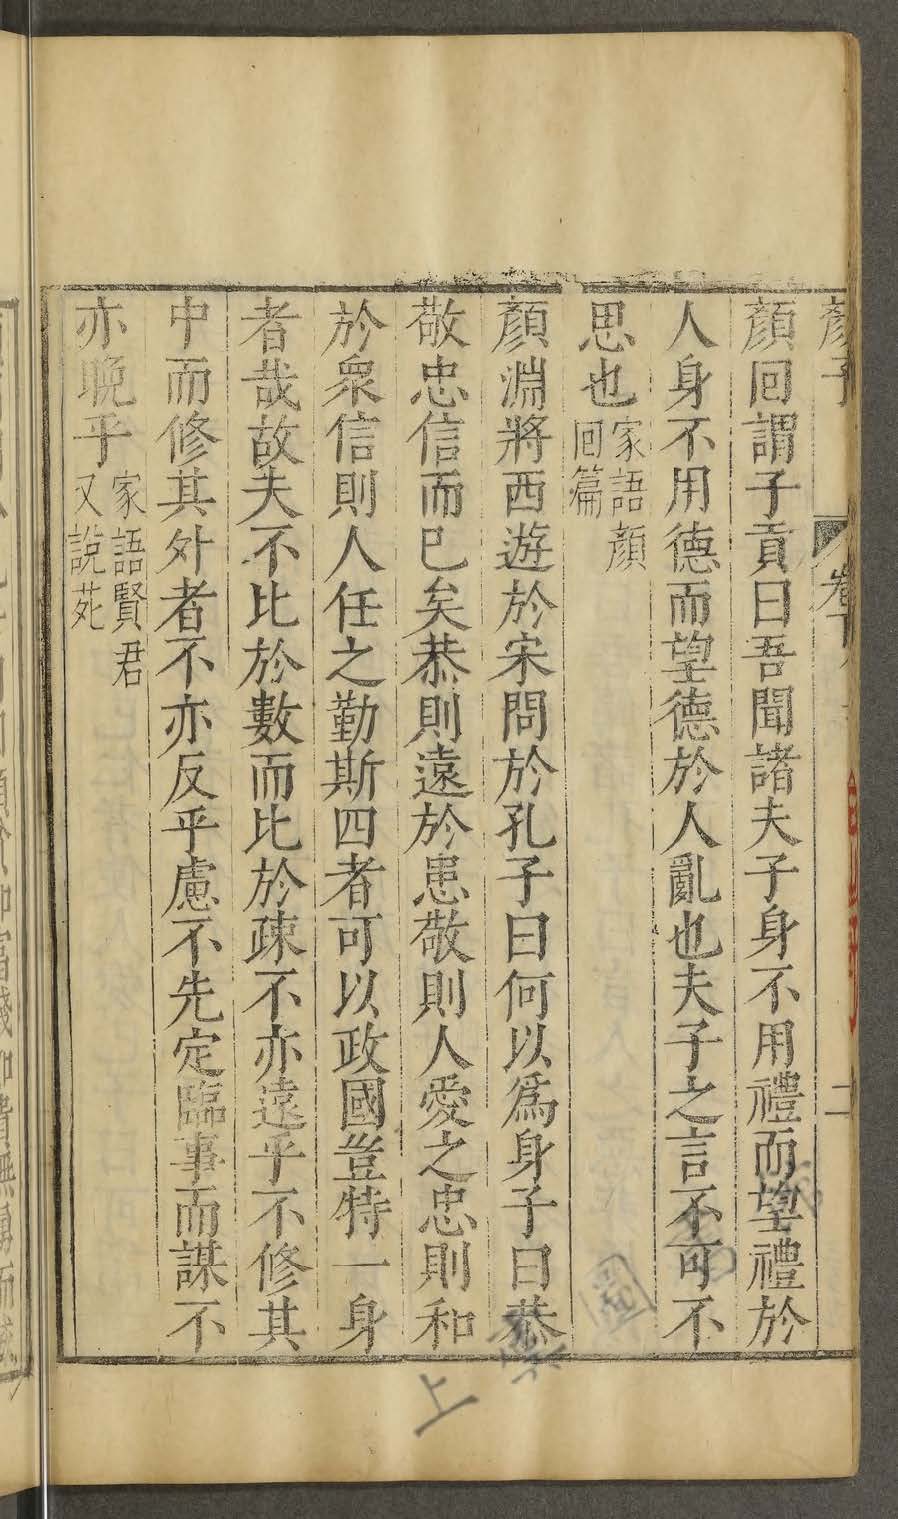 顏子
卷下
二
顏回謂子貢曰吾聞諸夫子身不用禮而望禮於
人身不用德而望德於人亂也夫子之言不可不
思也家語顏
回篇
顏淵將西遊於宋問於孔子曰何以爲身子曰恭
敬忠信而已矣恭則遠於患敬則人愛之忠則和
於衆信則人任之勤斯四者可以政國豈特一身
者哉故夫不比於數而比於疎不亦遠乎不修其
中而修其外者不亦反乎慮不先定臨事而謀不
亦晚乎家語賢君
又說苑